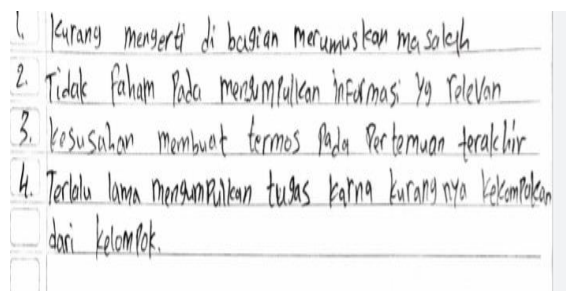 1. Kurang mengerti di bagian merumuskan masalah
2. Tidak faham Pada mengumpulkan informasi yg relevan
3. kesusahan membuat termos Pada Pertemuan terakhir
4. Terlalu lama mengumpulkan tugas karna kurang nya kekompakan
dari kelompok.